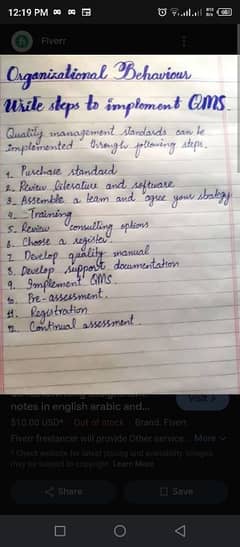 12:19 PM
Fiverr
Organizational Behaviour
Write steps to implement QMS.
Quality management standards can be
implemented through following steps.
1. Purchase standard
2. Review literature and software
3. Assemble a team and agree your strategy
4. Training
5. Review consulting options
6. Choose a register
7. Develop quality manual
8. Develop support documentation
9. Implement QMS.
10. Pre-assessment.
11. Registration
12. Continual assessment.
notes in english arabic and...
Visit >
$10.00 USD* · Out of stock · Brand: Fiverr
Fiverr freelancer will provide Other service... More
* Check website for latest pricing and availability. Images
may be subject to copyright. Learn More
Share
Save